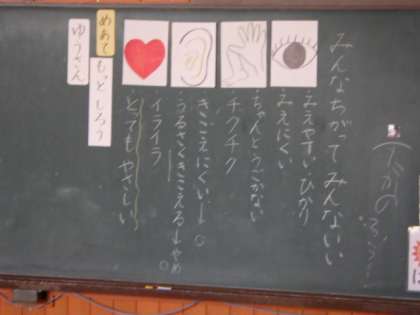 みんなちがってみんないい
みえやすい・ひかり
みえにくい
ちゃんとうごかない
チクチク
きこえにくい
うるさくきこえる
イライラ
とってもやさしい
めあて
もっとしろう
ゆうさん